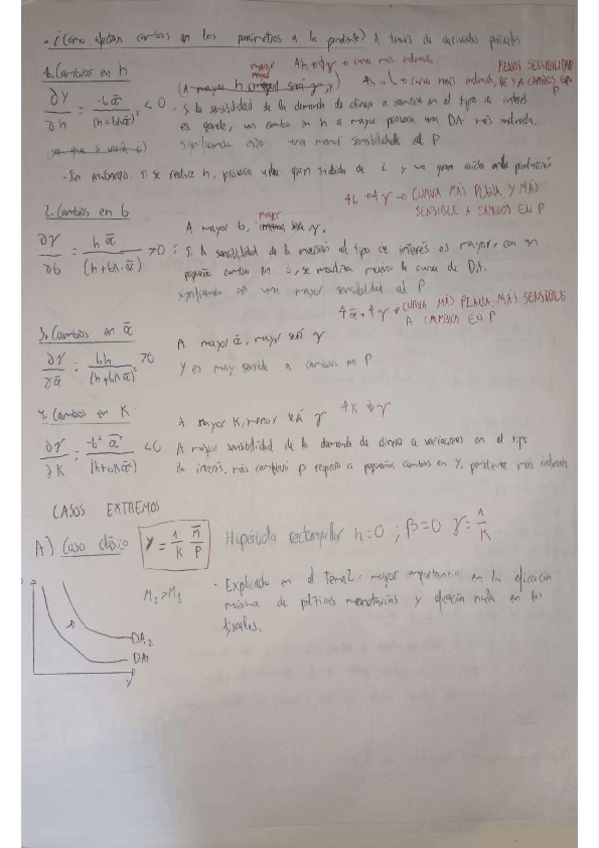 - ¿Cómo afectan cambios en los parámetros a la pendiente? A través de derivadas parciales
1. Cambios en h
(A mayor h mayor será γ,)
↑h → ↓γ → curva más inclinada
MENOS SENSIBILIDAD
DE Y A CAMBIOS EN P
∂γ/∂h = -bᾱ/(h+bkᾱ)² < 0
· Si la sensibilidad de la demanda de dinero a cambios en el tipo de interés
es grande, un cambio en h a mayor provoca una DA más inclinada,
significando esto una menor sensibilidad al P
- Sin embargo, si se reduce h, provoca una gran subida de i y una gran caída en la producción
2. Cambios en b
A mayor b, mayor será γ.
↑b → ↑γ → CURVA MÁS PLANA Y MÁS
SENSIBLE A CAMBIOS EN P
∂γ/∂b = hᾱ/(h+bk·ᾱ) > 0
: Si la sensibilidad de la inversión al tipo de interés es mayor, con un
pequeño cambio en i, se moviliza mucho la curva de DA.
significando en una mayor sensibilidad al P
3. Cambios en ᾱ
↑ᾱ → ↑γ → CURVA MÁS PLANA, MÁS SENSIBLE
A CAMBIOS EN P
A mayor ᾱ, mayor será γ
∂γ/∂ᾱ = bh/(h+bkᾱ)² > 0
Y es muy sensible a cambios en P
4. Cambios en K
A mayor K, menor será γ ↑K ↓γ
∂γ/∂K = -b²ᾱ²/(h+bkᾱ)² < 0
A mayor sensibilidad de la demanda de dinero a variaciones en el tipo
de interés, más cambiará P respecto a pequeños cambios en Y, pendiente más inclinada
CASOS EXTREMOS
A) Caso clásico Y = 1/K M̄/P Hipérbola rectangular h=0 ; β=0 γ=1/K
M₂>M₁
- Explicado en el Tema 2, mayor importancia en la eficacia
máxima de políticas monetarias y eficacia nula en las
fiscales.
DA₂
DA₁
P
Y